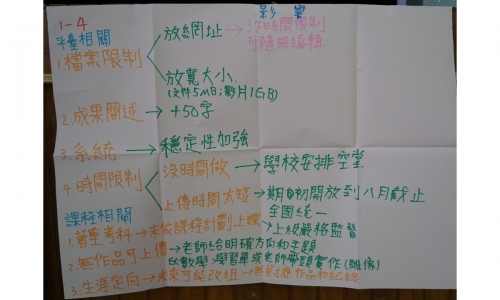 1-4 影響
平臺相關
1.檔案限制
放網址→沒時間限制
可隨時編輯
放寬大小
(文件5MB;影片1GB)
2.成果簡述→+50字
3.系統→穩定性加強
4.時間限制
沒時間做→學校安排空堂
上傳時間太短→期初開放到八月截止
全國統一
→上級嚴格監督
課程相關
1.著重考科→未按課程計劃上課
2.無作品可上傳→老師給明確方向和主題
數學→學習單或老師帶領實作(雕像)
3.生涯定向→未來可能改組→